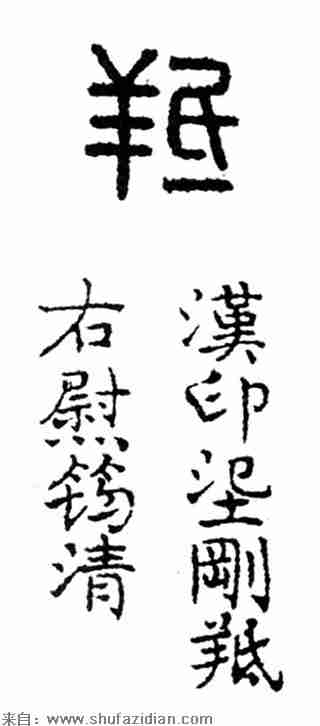 羝
漢印剛羝
右尉筠清
来自：www.shufazidian.com